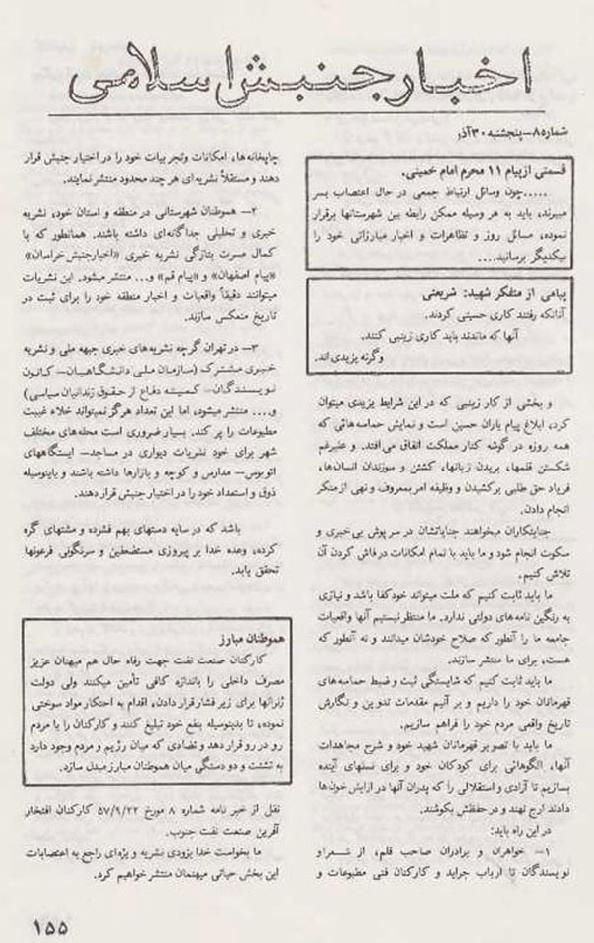 اخبار جنبش اسلامی
شماره ۸ــ پنجشنبه ۳۰ آذر
قسمتی از پیام ۱۱ محرم امام خمینی.
.....چون وسائل ارتباط جمعی در حال اعتصاب بسر
میبرند، باید به هر وسیله ممکن رابطه بین شهرستانها برقرار
نموده، مسائل روز و تظاهرات و اخبار مبارزاتی خود را
بیکدیگر برسانید....
پیامی از متفکر شهید: شریعتی
آنانکه رفتند کاری حسینی کردند.
آنها که ماندند باید کاری زینبی کنند.
وگرنه یزیدی اند.
و بخشی از کار زینبی که در این شرایط یزیدی میتوان
کرد، ابلاغ پیام یاران حسین است و نمایش حماسه هائی که
همه روزه در گوشه کنار مملکت اتفاق می افتد. و علیرغم
شکستن قلمها، بریدن زبانها، کشتن و سوزندان انسان‌ها،
فریاد حق طلبی برکشیدن و وظیفه امر بمعروف و نهی از منکر
انجام دادن.
جنایتکاران میخواهند جنایاتشان در سر پوش بی خبری و
سکوت انجام شود و ما باید با تمام امکانات در فاش کردن آن
تلاش کنیم.
ما باید ثابت کنیم که ملت میتواند خودکفا باشد و نیازی
به رنگین نامه های دولتی ندارد. ما منتظر نیستیم آنها واقعیات
جامعه ما را آنطور که صلاح خودشان میدانند و نه آنطور که
هست، برای ما منتشر سازند.
ما باید ثابت کنیم که شایستگی ثبت و ضبط حماسه های
قهرمانان خود را داریم و بر آنیم مقدمات تدوین و نگارش
تاریخ واقعی مردم خود را فراهم سازیم.
ما باید با تصویر قهرمانان شهید خود و شرح مجاهدات
آنها، الگوهائی برای کودکان خود و برای نسلهای آینده
بسازیم تا آزادی و استقلالی را که پدران آنها در ازایش خون ها
دادند ارج نهند و در حفظش بکوشند.
در این راه باید:
۱ــ خواهران و برادران صاحب قلم، از شعرا و
نویسندگان تا ارباب جراید و کارکنان فنی مطبوعات و
چاپخانه ها، امکانات وتجربیات خود را در اختیار جنبش قرار
دهند و مستقلاً نشریه ای هر چند محدود منتشر نمایند.
۲ــ هموطنان شهرستانی در منطقه و استان خود، نشریه
خبری و تحلیلی جداگانه‌ای داشته باشند. همانطور که با
کمال مسرت بتازگی نشریه خبری «اخبار جنبش خراسان»
«پیام اصفهان» و «پیام قم» و... منتشر میشود. این نشریات
میتوانند دقیقاً واقعیات و اخبار منطقه خود را برای ثبت در
تاریخ منعکس سازند.
۳ــ در تهران گرچه نشریه های خبری جبهه ملی و نشریه
خبری مشترک (سازمان ملی دانشگاهیان ــ کانون
نویسندگان ــ کمیته دفاع از حقوق زندانیان سیاسی)
و.... منتشر میشود، اما این تعداد هرگز نمیتواند خلاء غیبت
مطبوعات را پر کند. بسیار ضروری است محله های مختلف
شهر برای خود نشریات دیواری در مساجد ــ ایستگاههای
اتوبوس ــ مدارس و کوچه و بازارها داشته باشند و باینوسیله
ذوق و استعداد خود را در اختیار جنبش قرار دهند.
باشد که در سایه دستهای بهم فشرده و مشتهای گره
کرده، وعده خدا بر پیروزی مستضعفین و سرنگونی فرعونها
تحقق یابد.
هموطنان مبارز
کارکنان صنعت نفت جهت رفاه حال هم میهنان عزیز
مصرف داخلی را باندازه کافی تأمین میکنند ولی دولت
ژنرالها برای زیر فشار قرار دادن، اقدام به احتکار مواد سوختی
نموده، تا بدینوسیله بنفع خود تبلیغ کنند و کارکنان را با مردم
رو در رو قرار دهد و تضادی که میان رژیم و مردم وجود دارد
به تشتت و دو دستگی میان هموطنان مبارز مبدل سازد.
نقل از خبر نامه شماره ۸ مورخ ۵۷/۹/۲۲ کارکنان افتخار
آفرین صنعت نفت جنوب.
ما بخواست خدا بزودی نشریه ویژه ای راجع به اعتصابات
این بخش حیاتی میهنمان منتشر خواهیم کرد.
۱۵۵